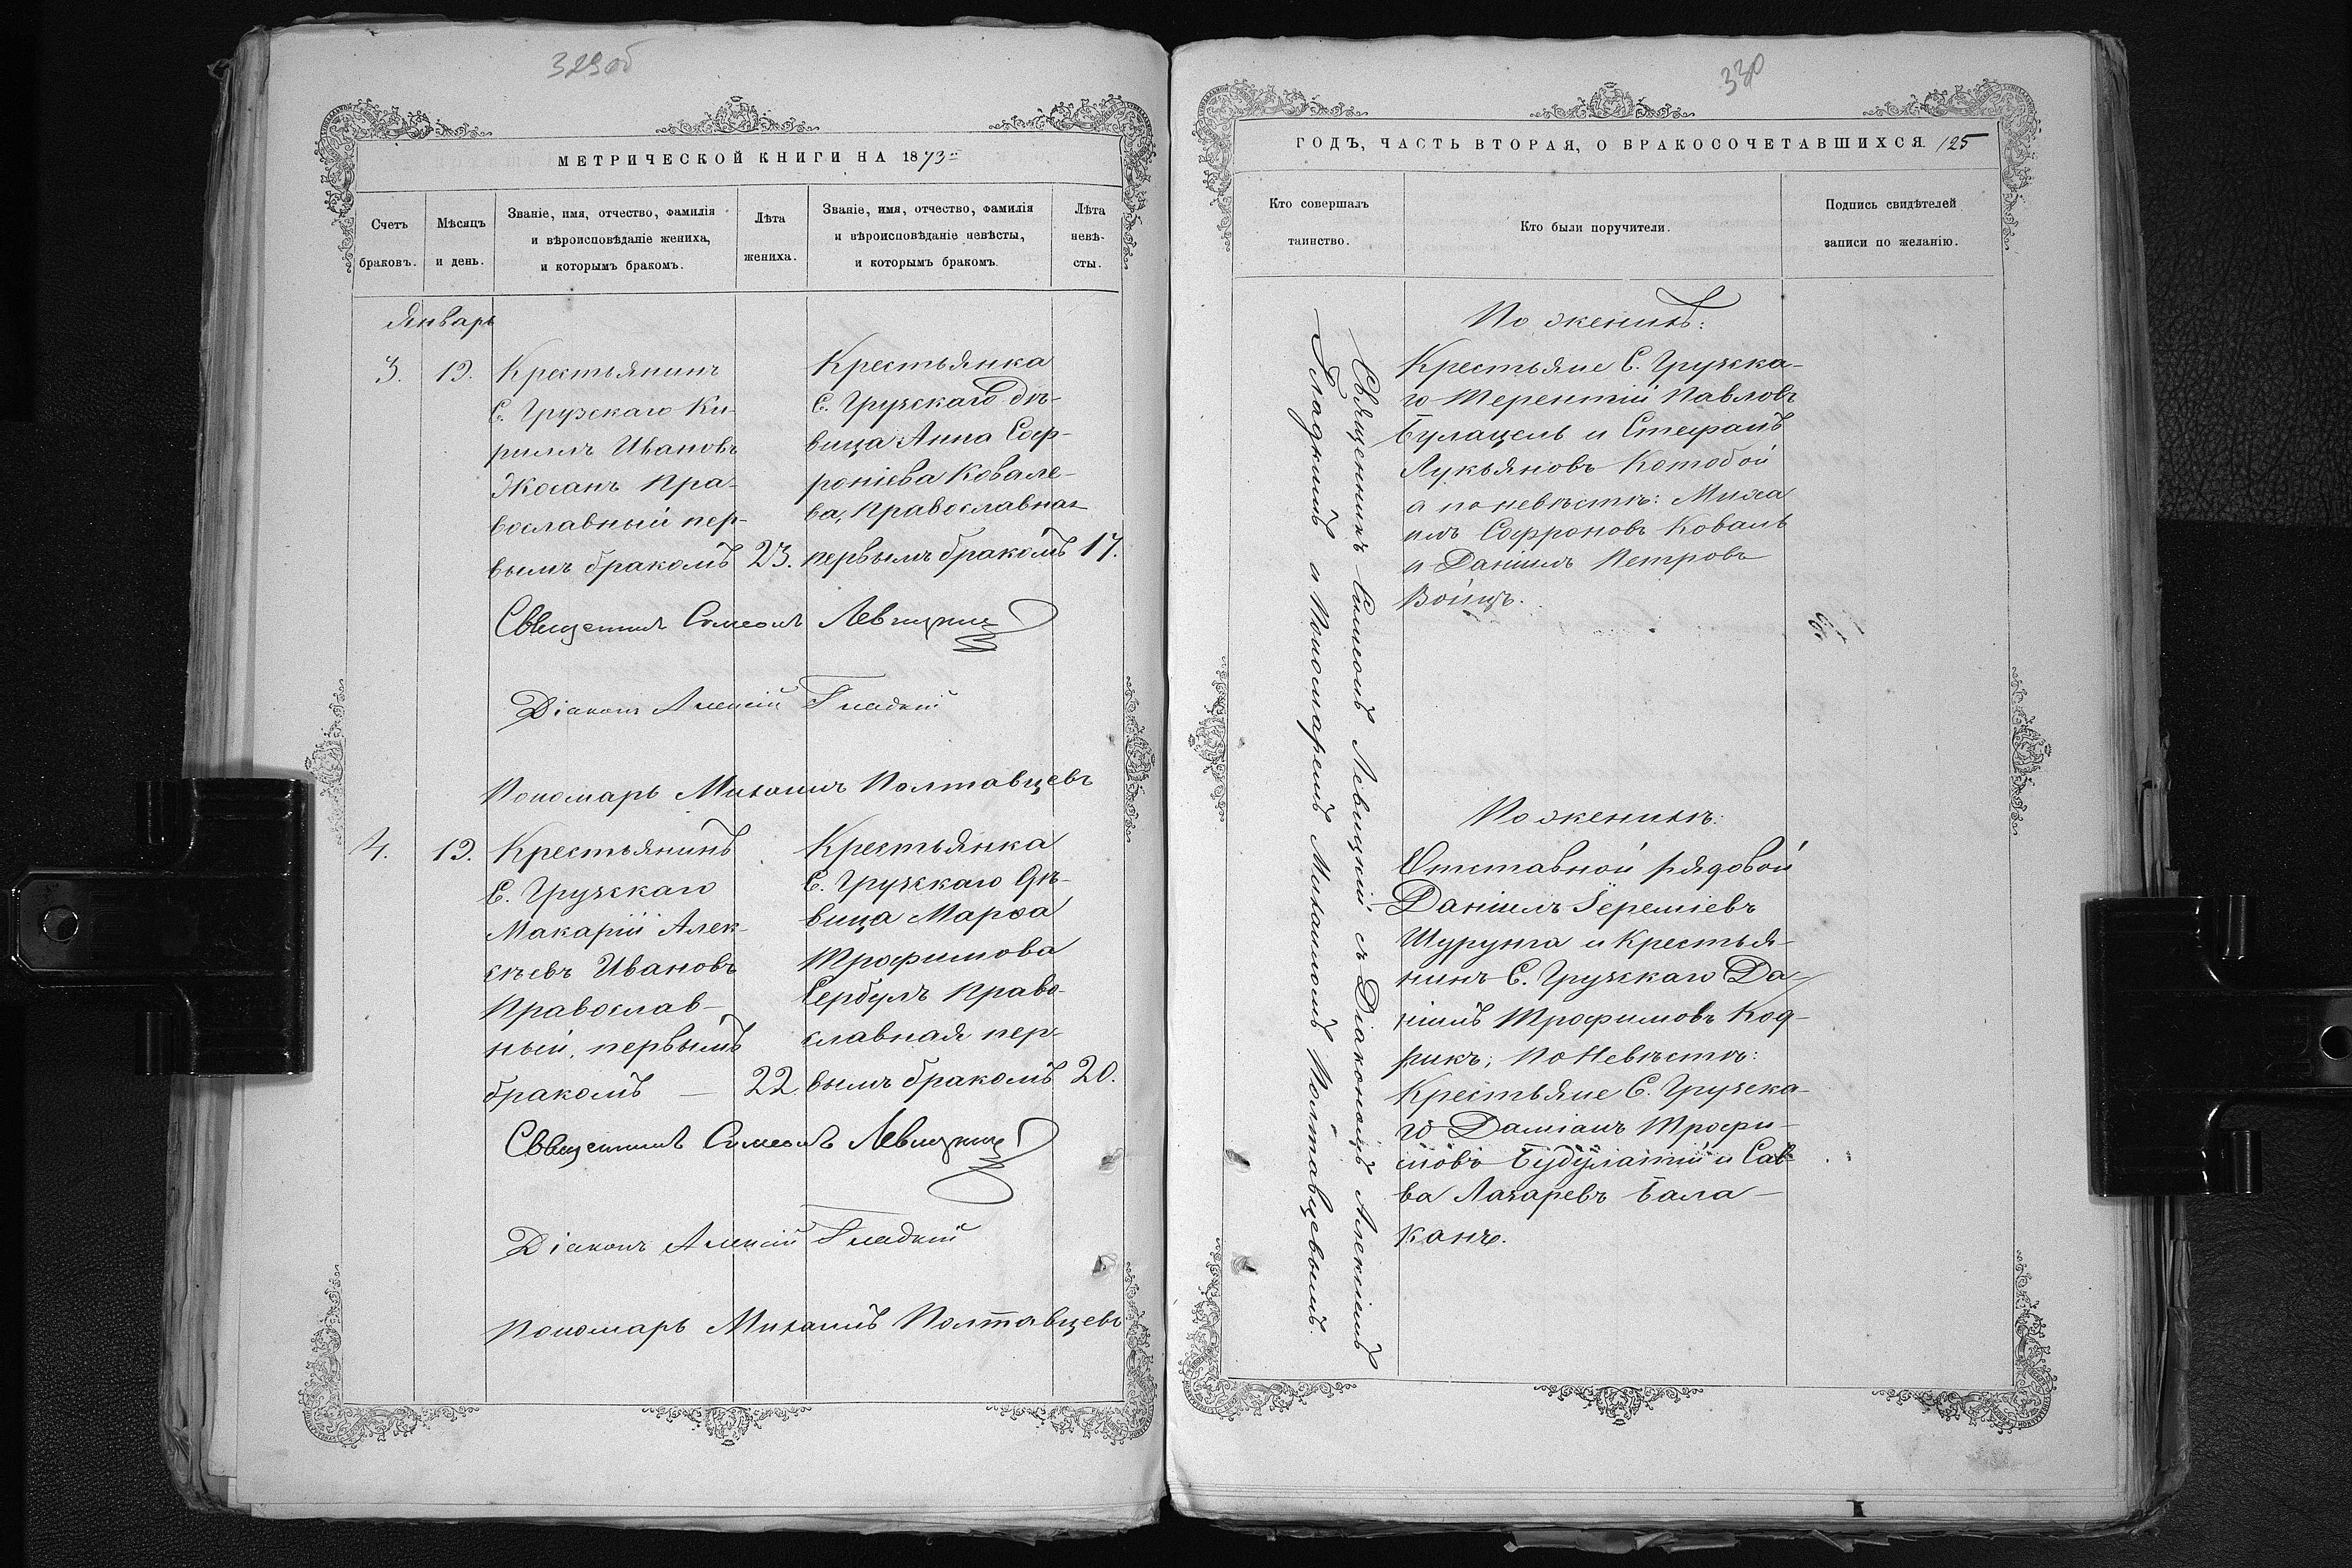 329об
МЕТРИЧЕСКОЙ КНИГИ НА 1873й
Счетъ браковъ.
Мѣсяцъ и день.
Званіе, имя, отчество, фамилія
и вѣроисповѣданіе жениха,
и которымъ бракомъ.
Лѣта
жениха.
Званіе, имя, отчество, фамилія
и вѣроисповѣданіе невѣсты,
и которымъ бракомъ.
Лѣта
невѣ-
сты.
Январь
3.
19.
Крестьянинъ
С. Грузскаго Ки-
риллъ Ивановъ
Жосанъ Пра-
вославный пер-
вымъ бракомъ
23.
Крестьянка
С. Грузскаго дѣ-
вица Анна Соф-
роніева Ковале-
ва, Православная
первымъ бракомъ
17.
Священникъ Симеонъ Левицкий
Діаконъ Алексій Гладкій
Пономарь Михаилъ Полтавцевъ
4.
19.
Крестьянинъ
С. Грузскаго
Макарій Алек-
сѣевъ Ивановъ
Православ-
ный, первымъ
бракомъ —
22.
Крестьянка
С. Грузскаго Дѣ-
вица Марѳа
Трофимова
Сербулъ Право-
славная пер-
вымъ бракомъ
20.
Священникъ Симеонъ Левицкий
Діаконъ Алексій Гладкій
Пономарь Михаилъ Полтавцевъ
330
ГОДЪ, ЧАСТЬ ВТОРАЯ, О БРАКОСОЧЕТАВШИХСЯ. 125
Кто совершалъ
таинство.
Кто были поручители.
Подпись свидѣтелей
записи по желанію.
Священникъ Симеонъ Левицкій съ Діакономъ Алексіемъ
Гладкимъ и Пономаремъ Михаиломъ Полтавцевымъ.
По женихѣ:
Крестьяне С. Грузска-
го Терентій Павловъ
Булацель и Стефанъ
Лукьяновъ Котобой
а по невѣстѣ: Миха
илъ Софроновъ Коваль
и Даніилъ Петровъ
Войцъ.
По женихѣ:
Отставной рядовой
Даніилъ Іереміевъ
Шурунга и Крестья-
нинъ С. Грузскаго Да-
ніилъ Трофимовъ Код-
рикъ; По Невѣстѣ:
Крестьяне С. Грузска-
го Даміанъ Трофи-
мовъ Будулатій и Сав-
ва Лазаревъ Бала-
канъ.